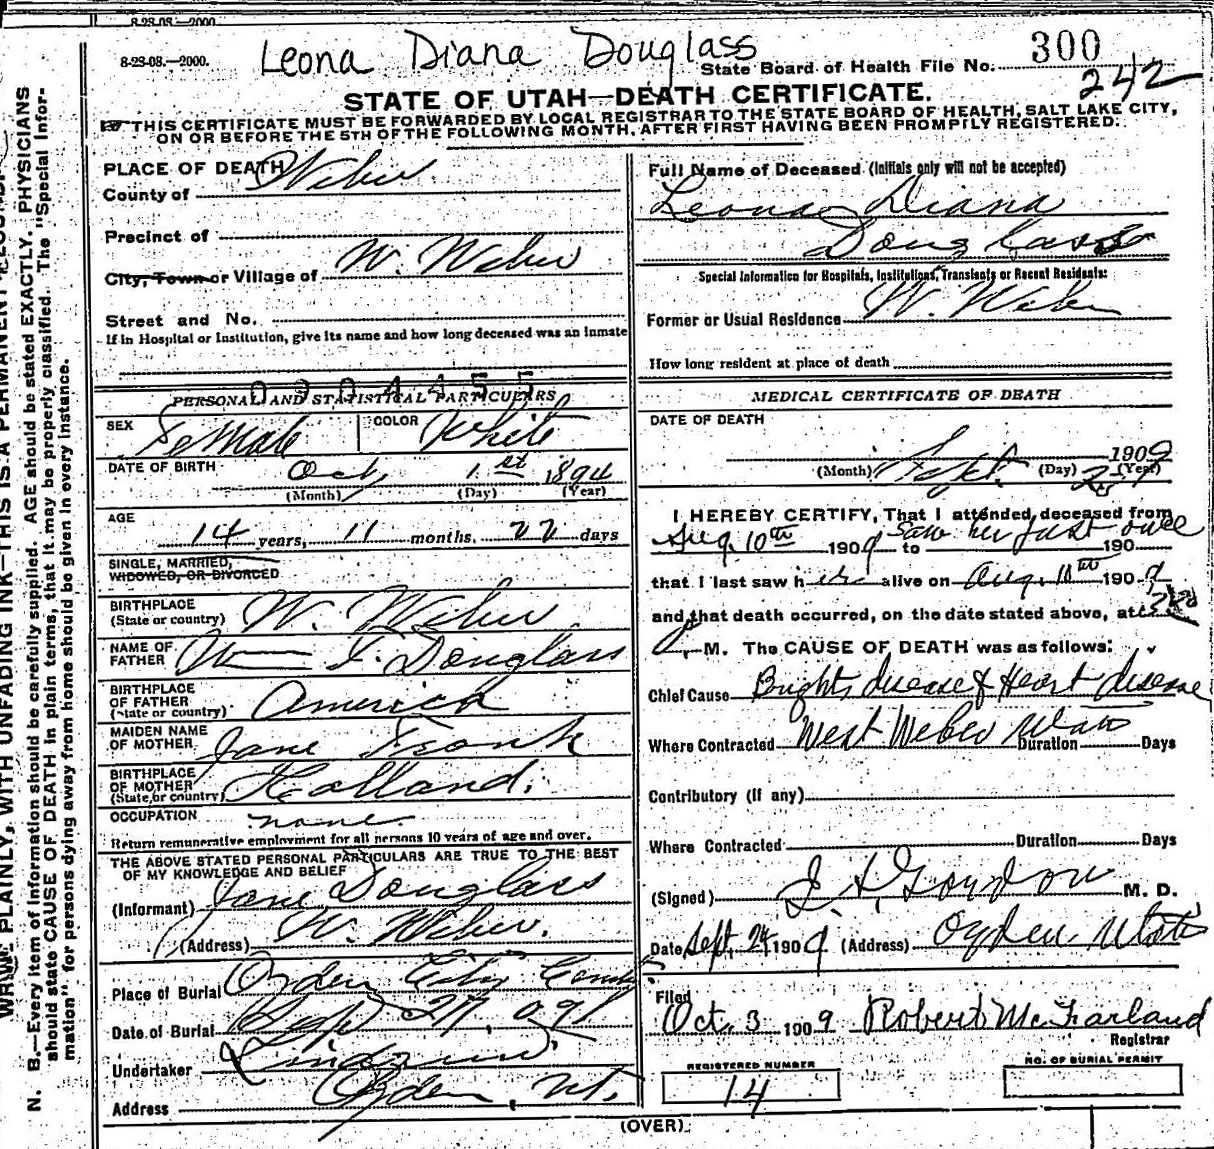 8-28-08.—2000.
8-28-08.—2000.
Leona Diana Douglass
State Board of Health File No. 300
242
STATE OF UTAH—DEATH CERTIFICATE.
THIS CERTIFICATE MUST BE FORWARDED BY LOCAL REGISTRAR TO THE STATE BOARD OF HEALTH, SALT LAKE CITY,
ON OR BEFORE THE 5TH OF THE FOLLOWING MONTH, AFTER FIRST HAVING BEEN PROMPTLY REGISTERED.
PLACE OF DEATH
County of Weber
Precinct of
City, Town or Village of W. Weber
Street and No.
If in Hospital or Institution, give its name and how long deceased was an inmate
PERSONAL AND STATISTICAL PARTICULARS
SEX Female COLOR White
DATE OF BIRTH Oct, 1st 1894
(Month) (Day) (Year)
AGE
14 years, 11 months, 22 days
SINGLE, MARRIED,
WIDOWED, OR DIVORCED
BIRTHPLACE
(State or country) W. Weber
NAME OF
FATHER Wm F. Douglass
BIRTHPLACE
OF FATHER
(State or country) America
MAIDEN NAME
OF MOTHER Jane Fronk
BIRTHPLACE
OF MOTHER
(State or country) Holland.
OCCUPATION none.
Return remunerative employment for all persons 10 years of age and over.
THE ABOVE STATED PERSONAL PARTICULARS ARE TRUE TO THE BEST
OF MY KNOWLEDGE AND BELIEF
(Informant) Jane Douglass
(Address) W. Weber.
Place of Burial Ogden City
Date of Burial Sept 27, 09
Undertaker Lindquist
Address Ogden, Ut.
Full Name of Deceased (Initials only will not be accepted)
Leona Diana
Douglass
Special Information for Hospitals, Institutions, Transients or Recent Residents:
Former or Usual Residence W. Weber
How long resident at place of death
MEDICAL CERTIFICATE OF DEATH
DATE OF DEATH
1909
(Month) Sept. (Day) (Year)
I HEREBY CERTIFY, That I attended deceased from
Aug. 10th 1909 to Saw her just once 190
that I last saw her alive on Aug. 10th 1909
and that death occurred, on the date stated above, at
M. The CAUSE OF DEATH was as follows:
Chief Cause Brights disease & Heart disease
Where Contracted West Weber Utah Duration Days
Contributory (If any)
Where Contracted Duration Days
(Signed) Gordon M. D.
Date Sept. 24 1909 (Address) Ogden Utah
Filed
Oct. 3 1909 Robert McFarland
Registrar
REGISTERED NUMBER
14
NO. OF BURIAL PERMIT
(OVER)
WRITE PLAINLY, WITH UNFADING INK—THIS IS A PERMANENT RECORD.
N. B.—Every item of information should be carefully supplied. AGE should be stated EXACTLY. PHYSICIANS
should state CAUSE OF DEATH in plain terms, that it may be properly classified. The "Special Infor-
mation" for persons dying away from home should be given in every instance.